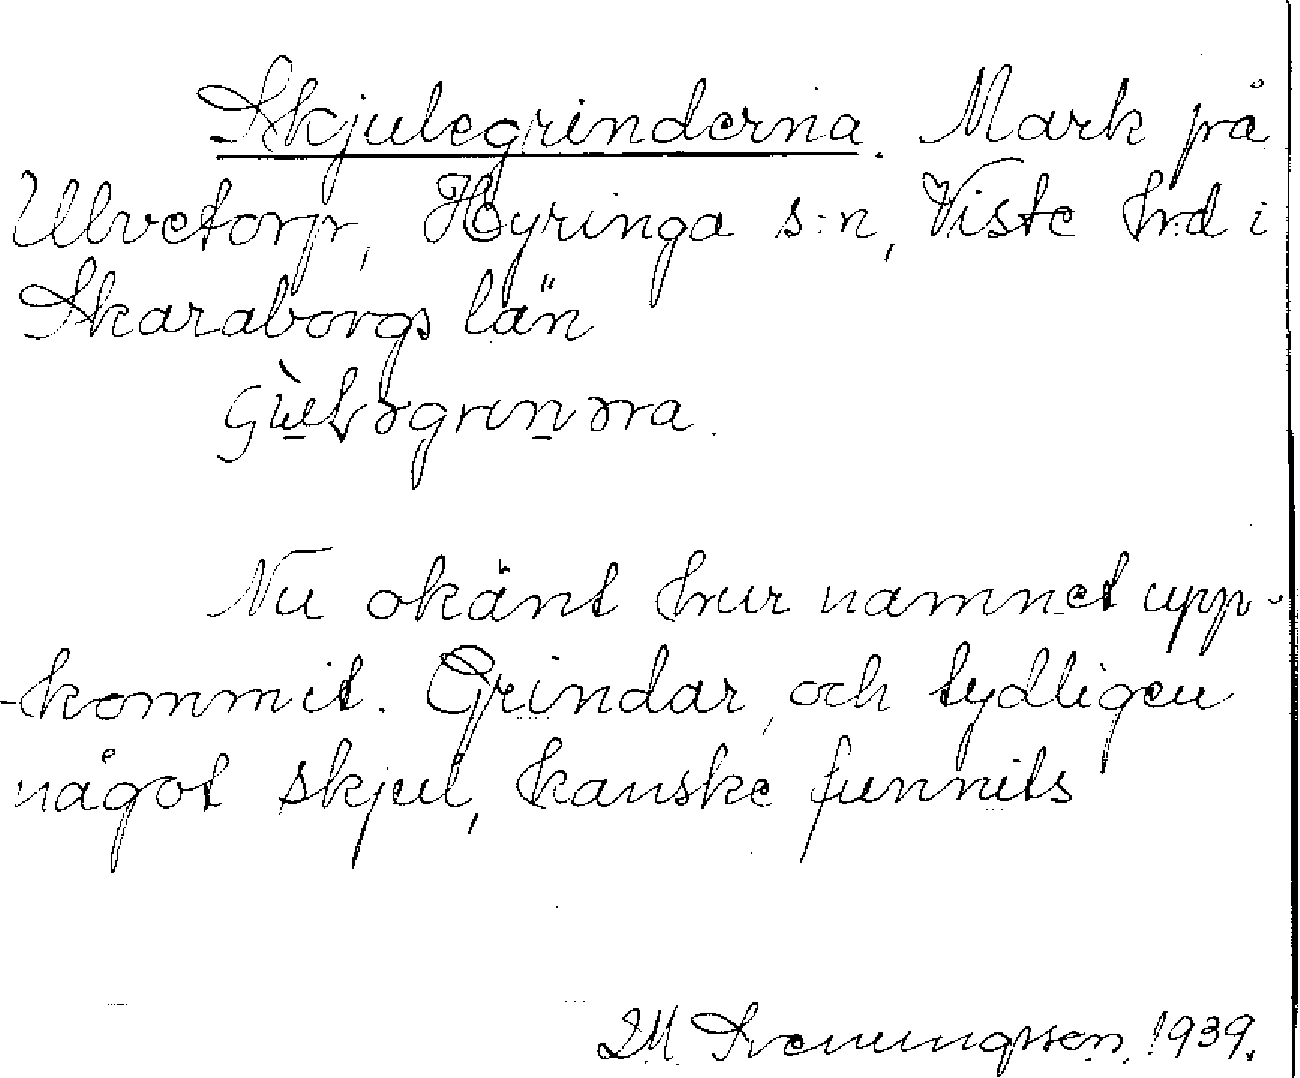 Skjulegrinderna. Mark på
Ulvetorp, Hyringa s:n, Viste hrd i
Skaraborgs län

Nu okänt hur namnet upp-
-kommit. Grindar, och tydligen
något skjul, kanske funnits
IM Svenungsson, 1939.